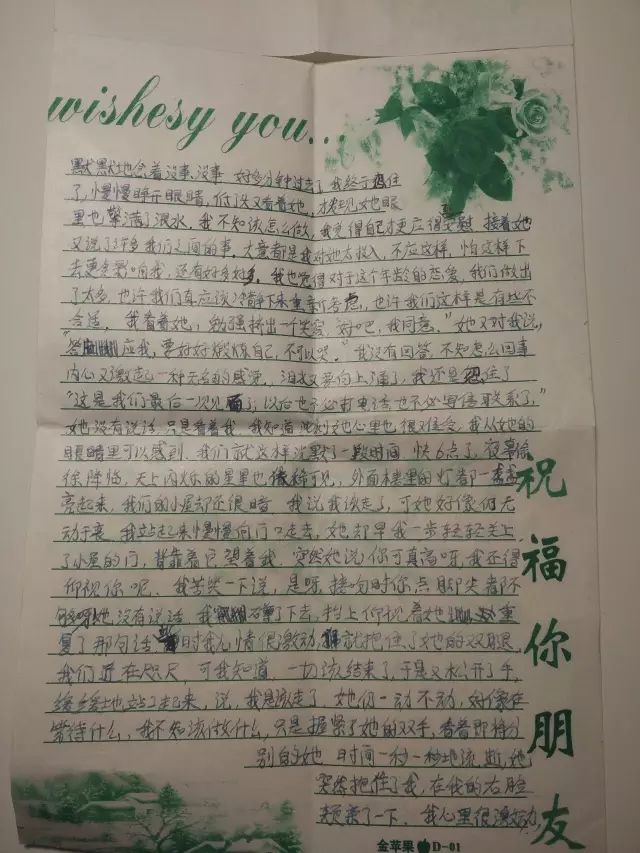 wishesy you...
默默地念着没事,没事 好多分钟过去了我终于忍住
了,慢慢睁开眼睛,低了头看着她,才发现她眼
里也擎满了泪水,我不知该怎么做,我觉得自己才更应得安慰 接着她
又说了许多我们之间的事,大意都是我对她太投入,不应这样,怕这样下
去更会影响我,还有好多好多,我也觉得对于这个年龄的恋爱,我们做出
了太多,也许我们真应该冷静下来重新考虑,也许我们这样是有些不
合适,我看着她,勉强挤出一个笑容"好吧,我同意,"她又对我说,
"答应我,要好好锻炼自己,不可以哭,"我没有回答,不知怎么回事
内心又激起一种无名的感觉,泪水又要向上涌了,我还是忍住了
"这是我们最后一次见面了,以后也不必打电话也不必写信联系了,"
她没有说话,只是看着我,我知道此刻她心里也很难受,我从她的
眼睛里可以感到,我们就这样沉默了一段时间 快6点了,夜幕徐
徐降临,天上闪烁的星星也依稀可见,外面楼里的灯都一盏盏
亮起来,我们的小屋却还很暗 我说我该走了,可她好像仍无
动于衷 我站起来慢慢向门口走去,她却早我一步轻轻关上
了小屋的门,背靠着它望着我,突然她说,你可真高呀,我还得
仰视你呢,我苦笑一下说,是呀,接吻时你点脚尖都不
够呀她没有说话 我蹲了下去,抬上仰视着她 重
复了那句话 时我心情很激动,就抱住了她的双腿
我们近在咫尺,可我知道,一切该结束了,于是又松开了手,
缓缓地站了起来,说,我是该走了,她仍一动不动,好像在
等待什么,我不知该做什么,只是握紧了她的双手,看着即将分
别的她,时间一秒一秒地流逝,她
突然抱住了我,在我的右脸
颊亲了一下,我心里很激动,
祝福你朋友
金苹果 D-01